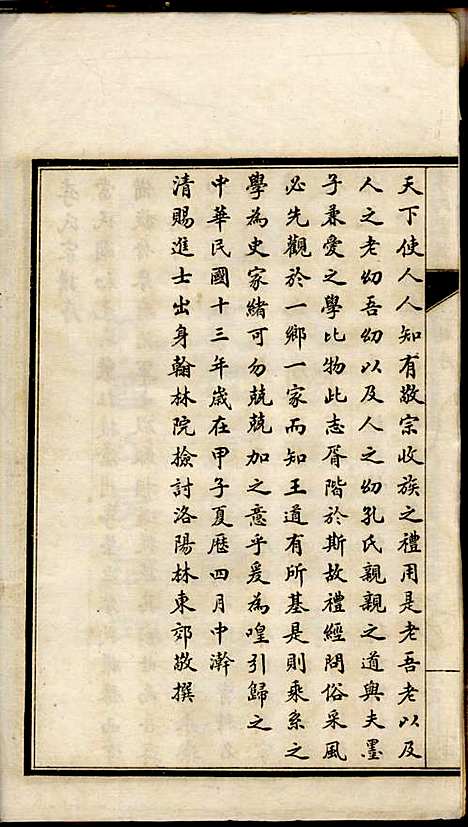 天下使人人知有敬宗收族之禮用是老吾老以及
人之老幼吾幼以及人之幼孔氏親親之道與夫墨
子兼愛之學比物此志胥階於斯故禮經問俗采風
必先觀於一鄉一家而知王道有所基是則乘系之
學為史家緒可勿兢兢加之意乎爰為喤引歸之
中華民國十三年歲在甲子夏曆四月中澣
清賜進士出身翰林院撿討洛陽林東郊敬撰